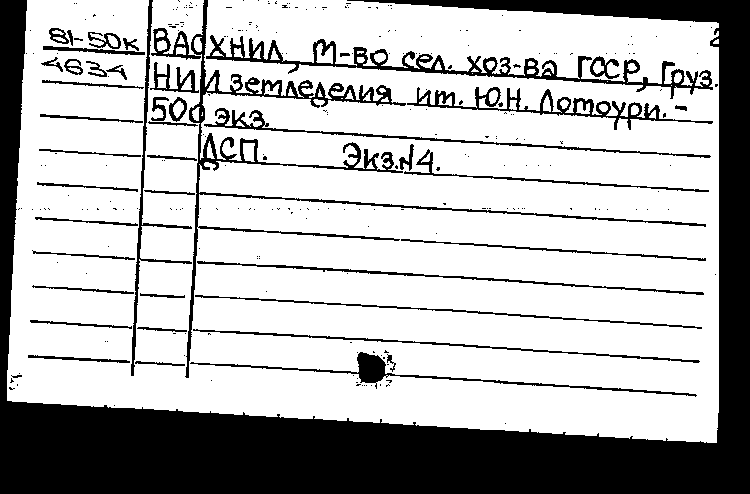 2
81-50к ВАСХНИЛ, М-во сел. хоз-ва ГССР, Груз.
4634 НИИ земледелия им. Ю.Н. Ломоури. -
500 экз.
ДСП. Экз.N4.